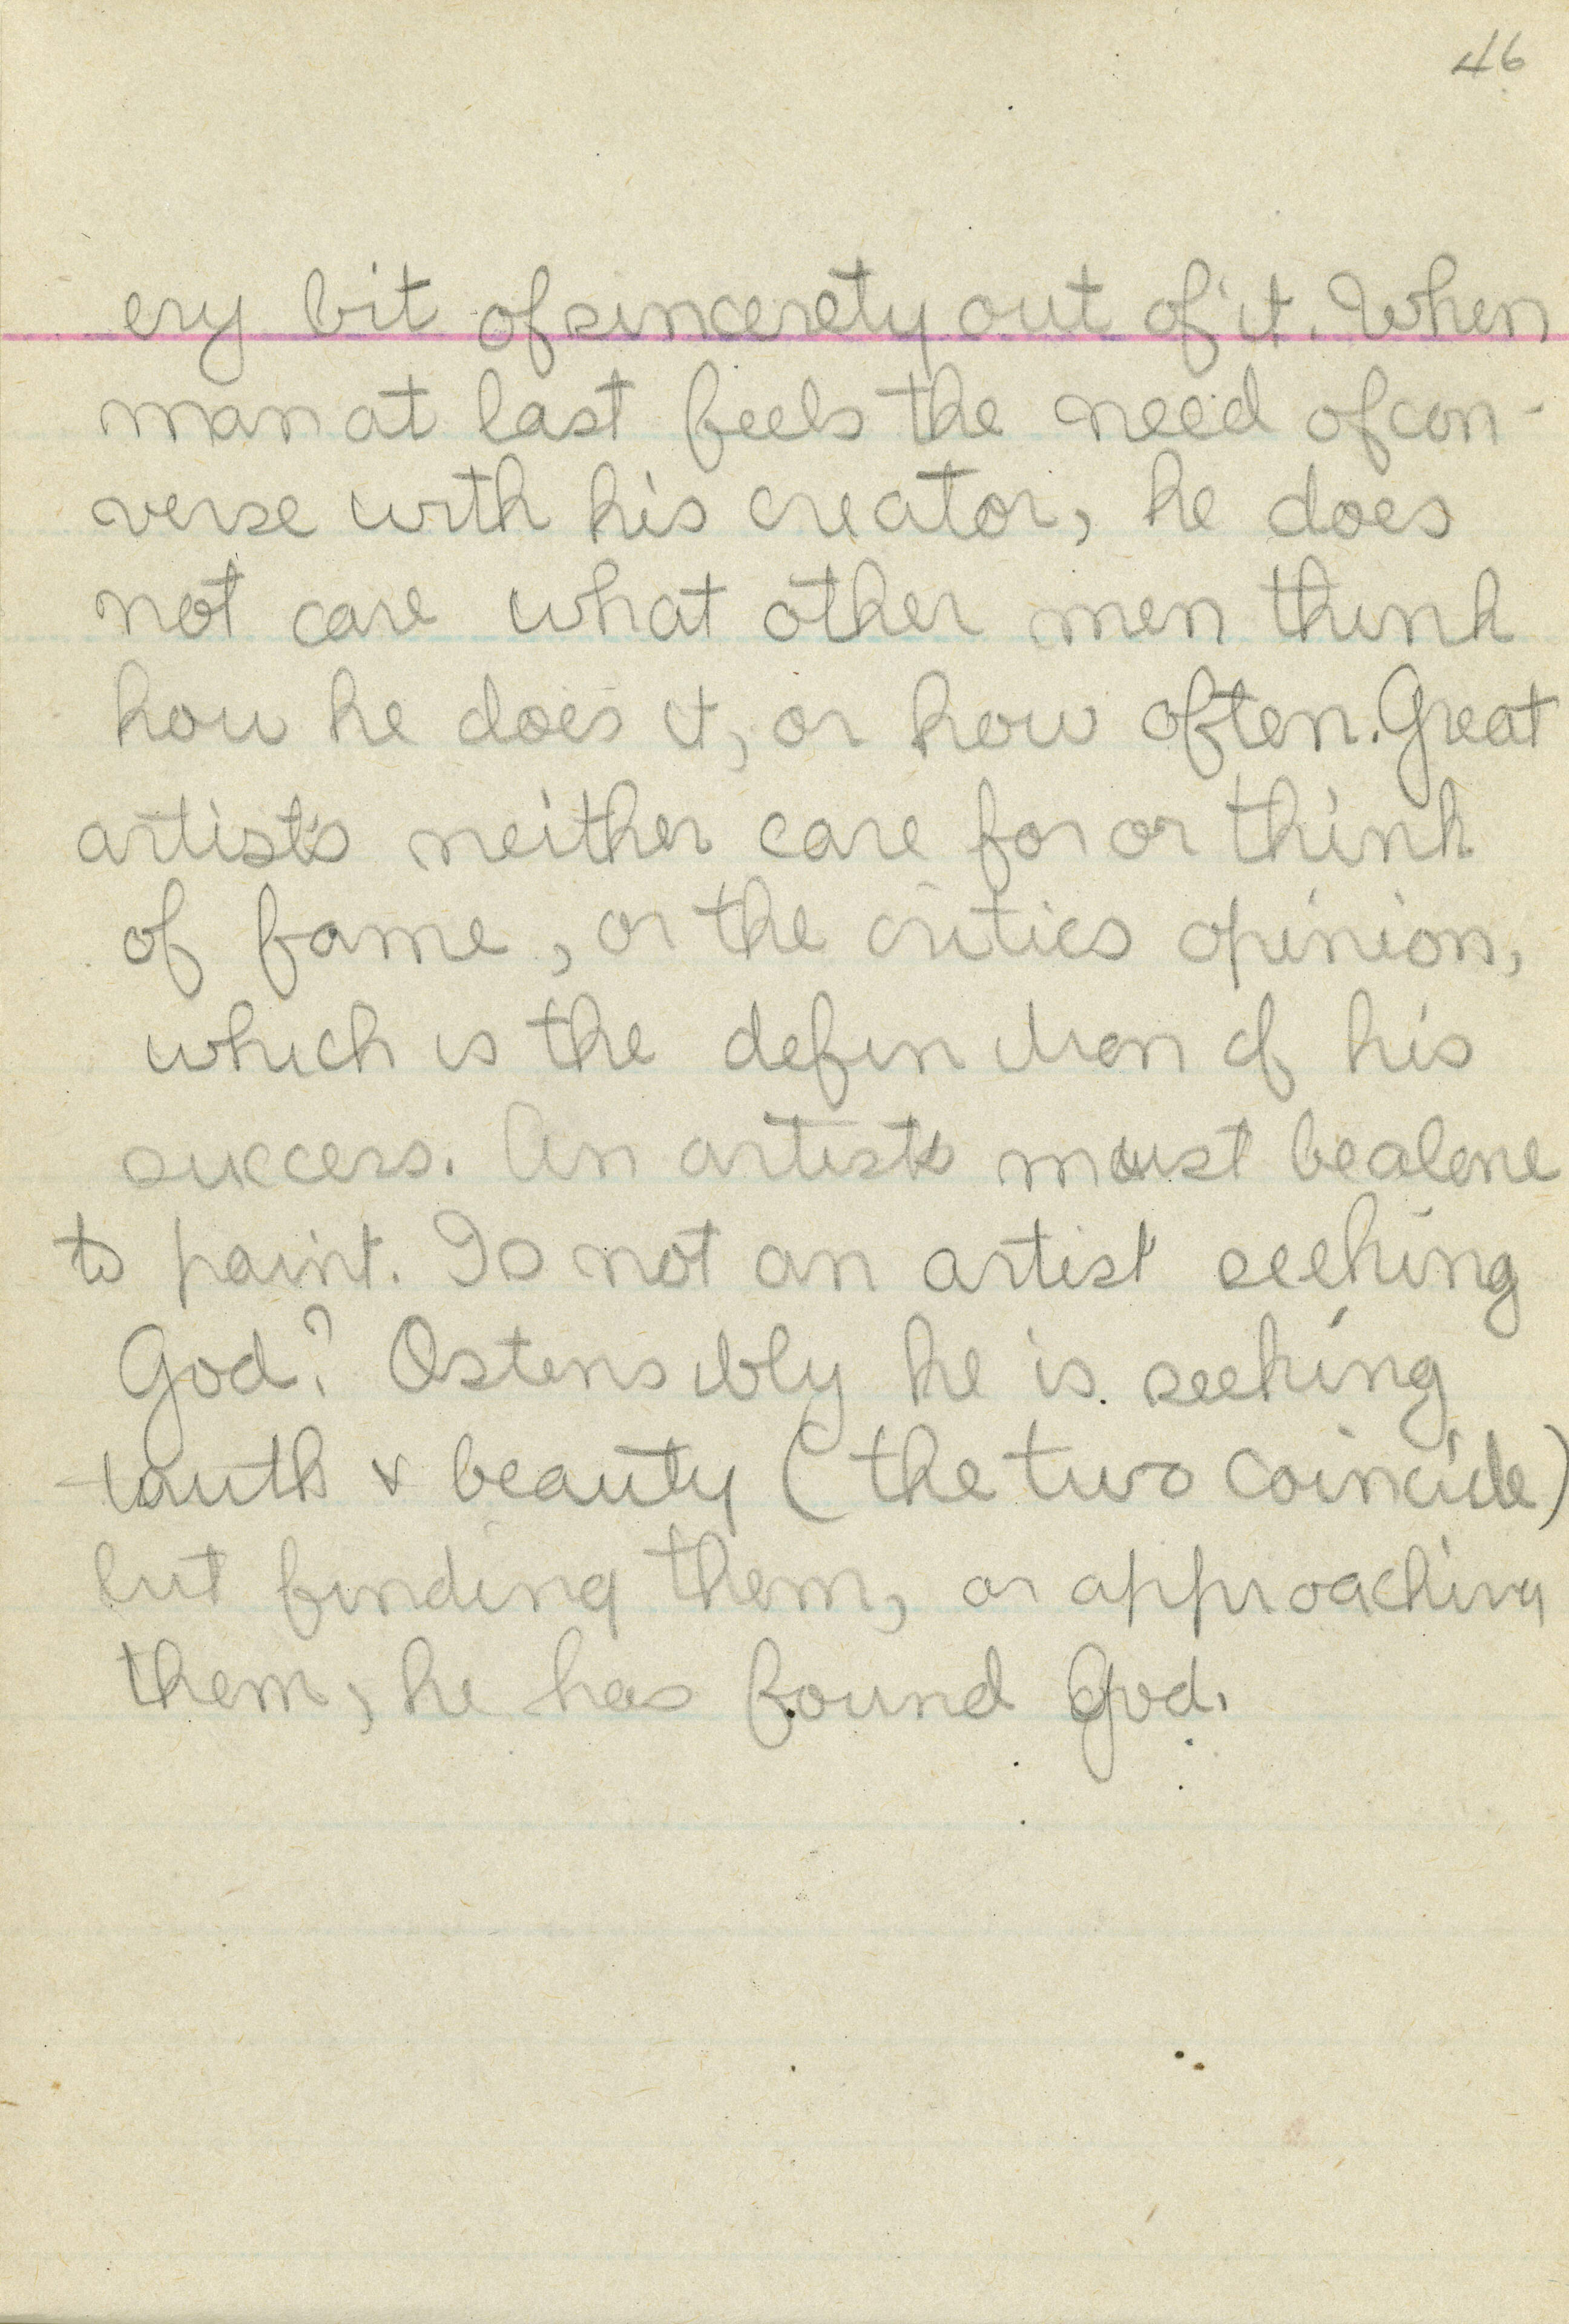 46
ery bit of sincerety out of it. When
man at last feels the need of con-
verse with his creator, he does
not care what other men think
how he does it, or how often. Great
artists neither care for or think
of fame, or the critics opinion,
which is the definition of his
success. An artists must be alone
to paint. Is not an artist seeking
God? Ostensibly he is seeking
truth & beauty (the two coincide)
but finding them, or approaching
them, he has found God.